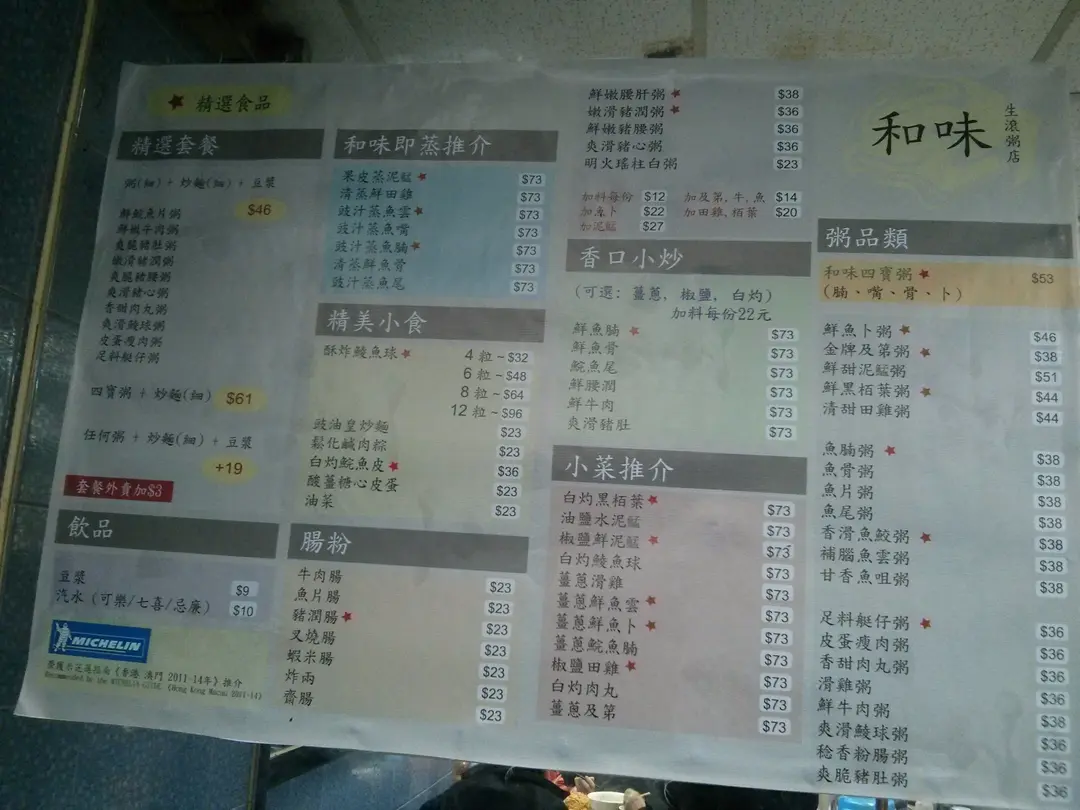 ★ 精選食品
精選套餐
粥(細) + 炒麵(細) + 豆漿
$46
鮮鯇魚片粥
鮮嫩牛肉粥
爽脆豬肚粥
嫩滑豬潤粥
爽脆豬腰粥
爽滑豬心粥
香甜肉丸粥
爽滑鯪球粥
皮蛋瘦肉粥
足料艇仔粥
四寶粥 + 炒麵(細) $61
任何粥 + 炒麵(細) + 豆漿
+19
套餐外賣加$3
飲品
豆漿 $9
汽水 (可樂/七喜/忌廉) $10
MICHELIN
榮獲米芝蓮指南《香港 澳門 2011-14年》推介
Recommended by the MICHELIN GUIDE (Hong Kong Macau 2011-14)
和味即蒸推介
果皮蒸泥鯭★ $73
清蒸鮮田雞 $73
豉汁蒸魚雲★ $73
豉汁蒸魚嘴 $73
豉汁蒸魚腩★ $73
清蒸鮮魚骨 $73
豉汁蒸魚尾 $73
精美小食
酥炸鯪魚球★ 4 粒~$32
6 粒~$48
8 粒~$64
12 粒~$96
豉油皇炒麵 $23
鬆化鹹肉粽 $23
白灼鯇魚皮★ $36
酸薑糖心皮蛋 $23
油菜 $23
腸粉
牛肉腸 $23
魚片腸 $23
豬潤腸★ $23
叉燒腸 $23
蝦米腸 $23
炸兩 $23
齋腸 $23
鮮嫩腰肝粥★ $38
嫩滑豬潤粥★ $36
鮮嫩豬腰粥 $36
爽滑豬心粥 $36
明火瑤柱白粥 $23
加料每份 $12 加及第,牛,魚 $14
加魚卜 $22 加田雞,栢葉 $20
加泥鯭 $27
香口小炒
(可選: 薑蔥, 椒鹽, 白灼)
加料每份22元
鮮魚腩★ $73
鮮魚骨 $73
鯇魚尾 $73
鮮腰潤 $73
鮮牛肉 $73
爽滑豬肚 $73
小菜推介
白灼黑栢葉★ $73
油鹽水泥鯭 $73
椒鹽鮮泥鯭★ $73
白灼鯪魚球 $73
薑蔥滑雞 $73
薑蔥鮮魚雲★ $73
薑蔥鮮魚卜★ $73
薑蔥鯇魚腩 $73
椒鹽田雞★ $73
白灼肉丸 $73
薑蔥及第 $73
和味
生滾粥店
粥品類
和味四寶粥★ $53
(腩、嘴、骨、卜)
鮮魚卜粥★ $46
金牌及第粥★ $38
鮮甜泥鯭粥 $51
鮮黑栢葉粥★ $44
清甜田雞粥 $44
魚腩粥★ $38
魚骨粥 $38
魚片粥 $38
魚尾粥 $38
香滑魚鮫粥★ $38
補腦魚雲粥 $38
甘香魚咀粥 $38
足料艇仔粥★ $36
皮蛋瘦肉粥 $36
香甜肉丸粥 $36
滑雞粥 $36
鮮牛肉粥 $38
爽滑鯪球粥 $36
稔香粉腸粥 $36
爽脆豬肚粥 $36